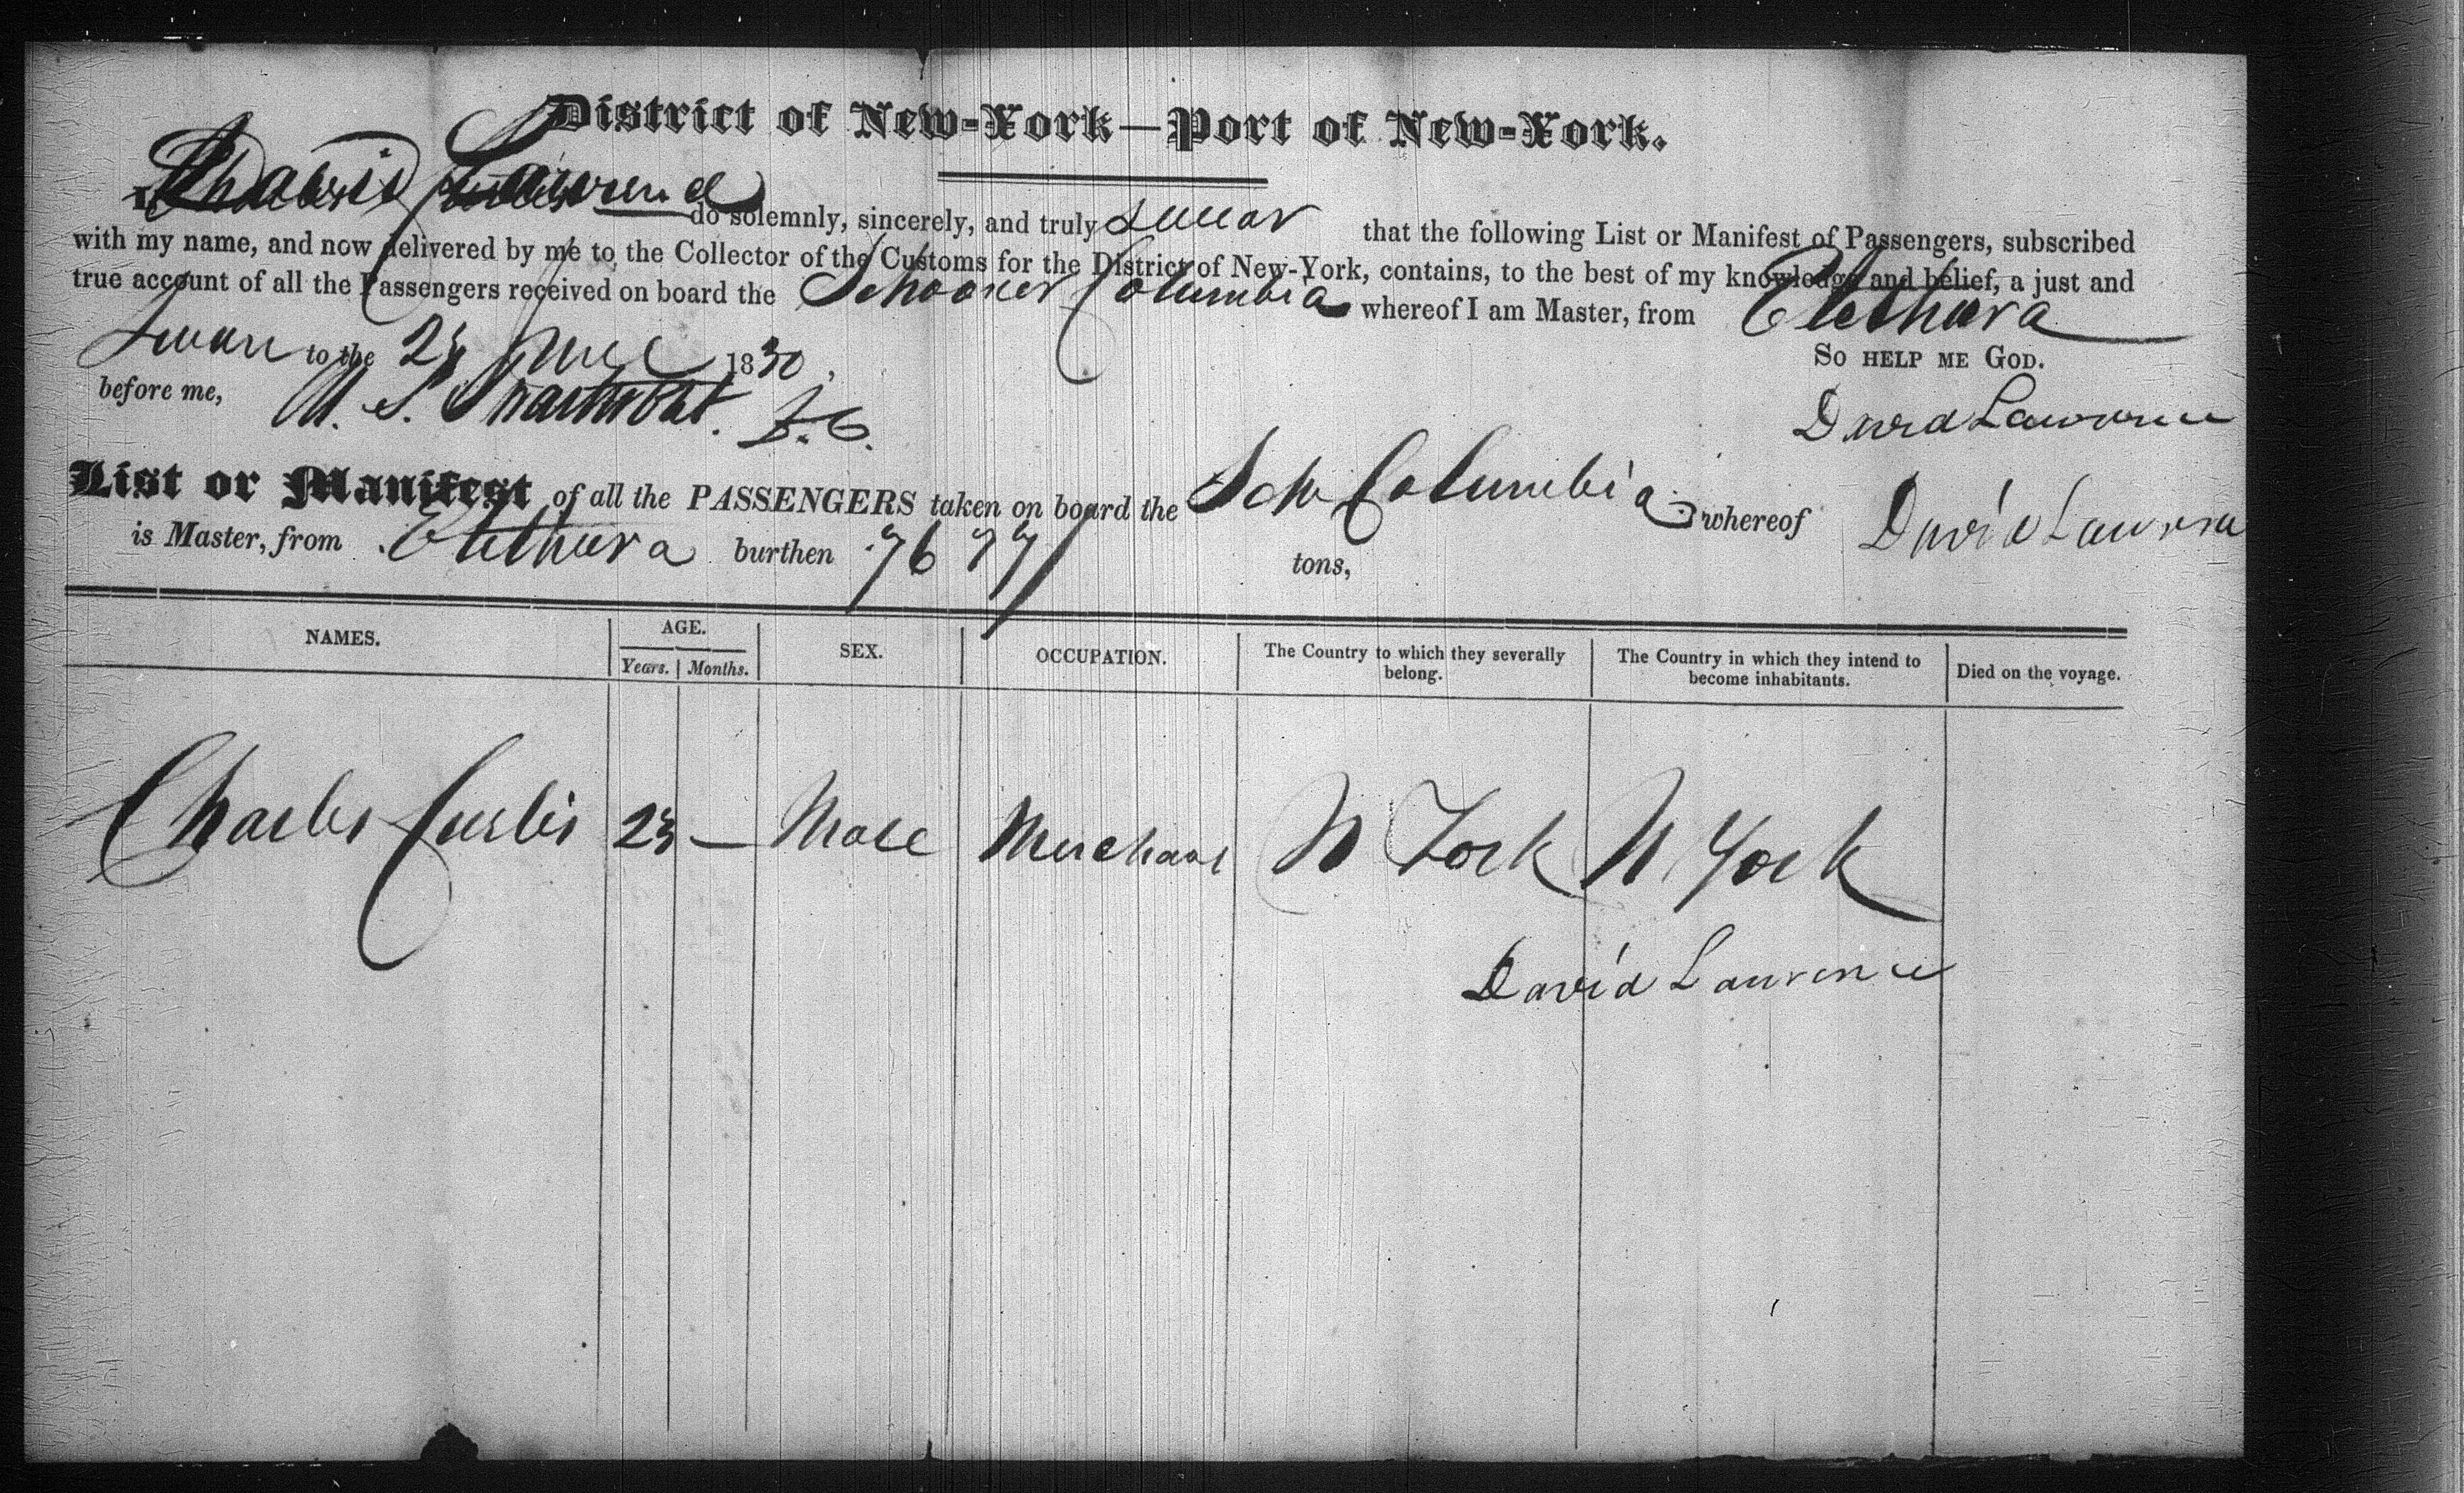 District of New-York—Port of New-York.
I, David Lawrence do solemnly, sincerely, and truly swear that the following List or Manifest of Passengers, subscribed
with my name, and now delivered by me to the Collector of the Customs for the District of New-York, contains, to the best of my knowledge and belief, a just and
true account of all the Passengers received on board the Schooner Columbia whereof I am Master, from Elethura
Sworn to the 1830, So help me God.
before me, David Lawrence
List or Manifest of all the PASSENGERS taken on board the Sch Columbia whereof David Lawrence
is Master, from Elethura burthen 76 77/ tons,
NAMES. AGE. SEX. OCCUPATION. The Country to which they severally belong. The Country in which they intend to become inhabitants. Died on the voyage.
Years. Months.
Charles Curtis 23 — Male Merchant N York N. York
David Lawrence